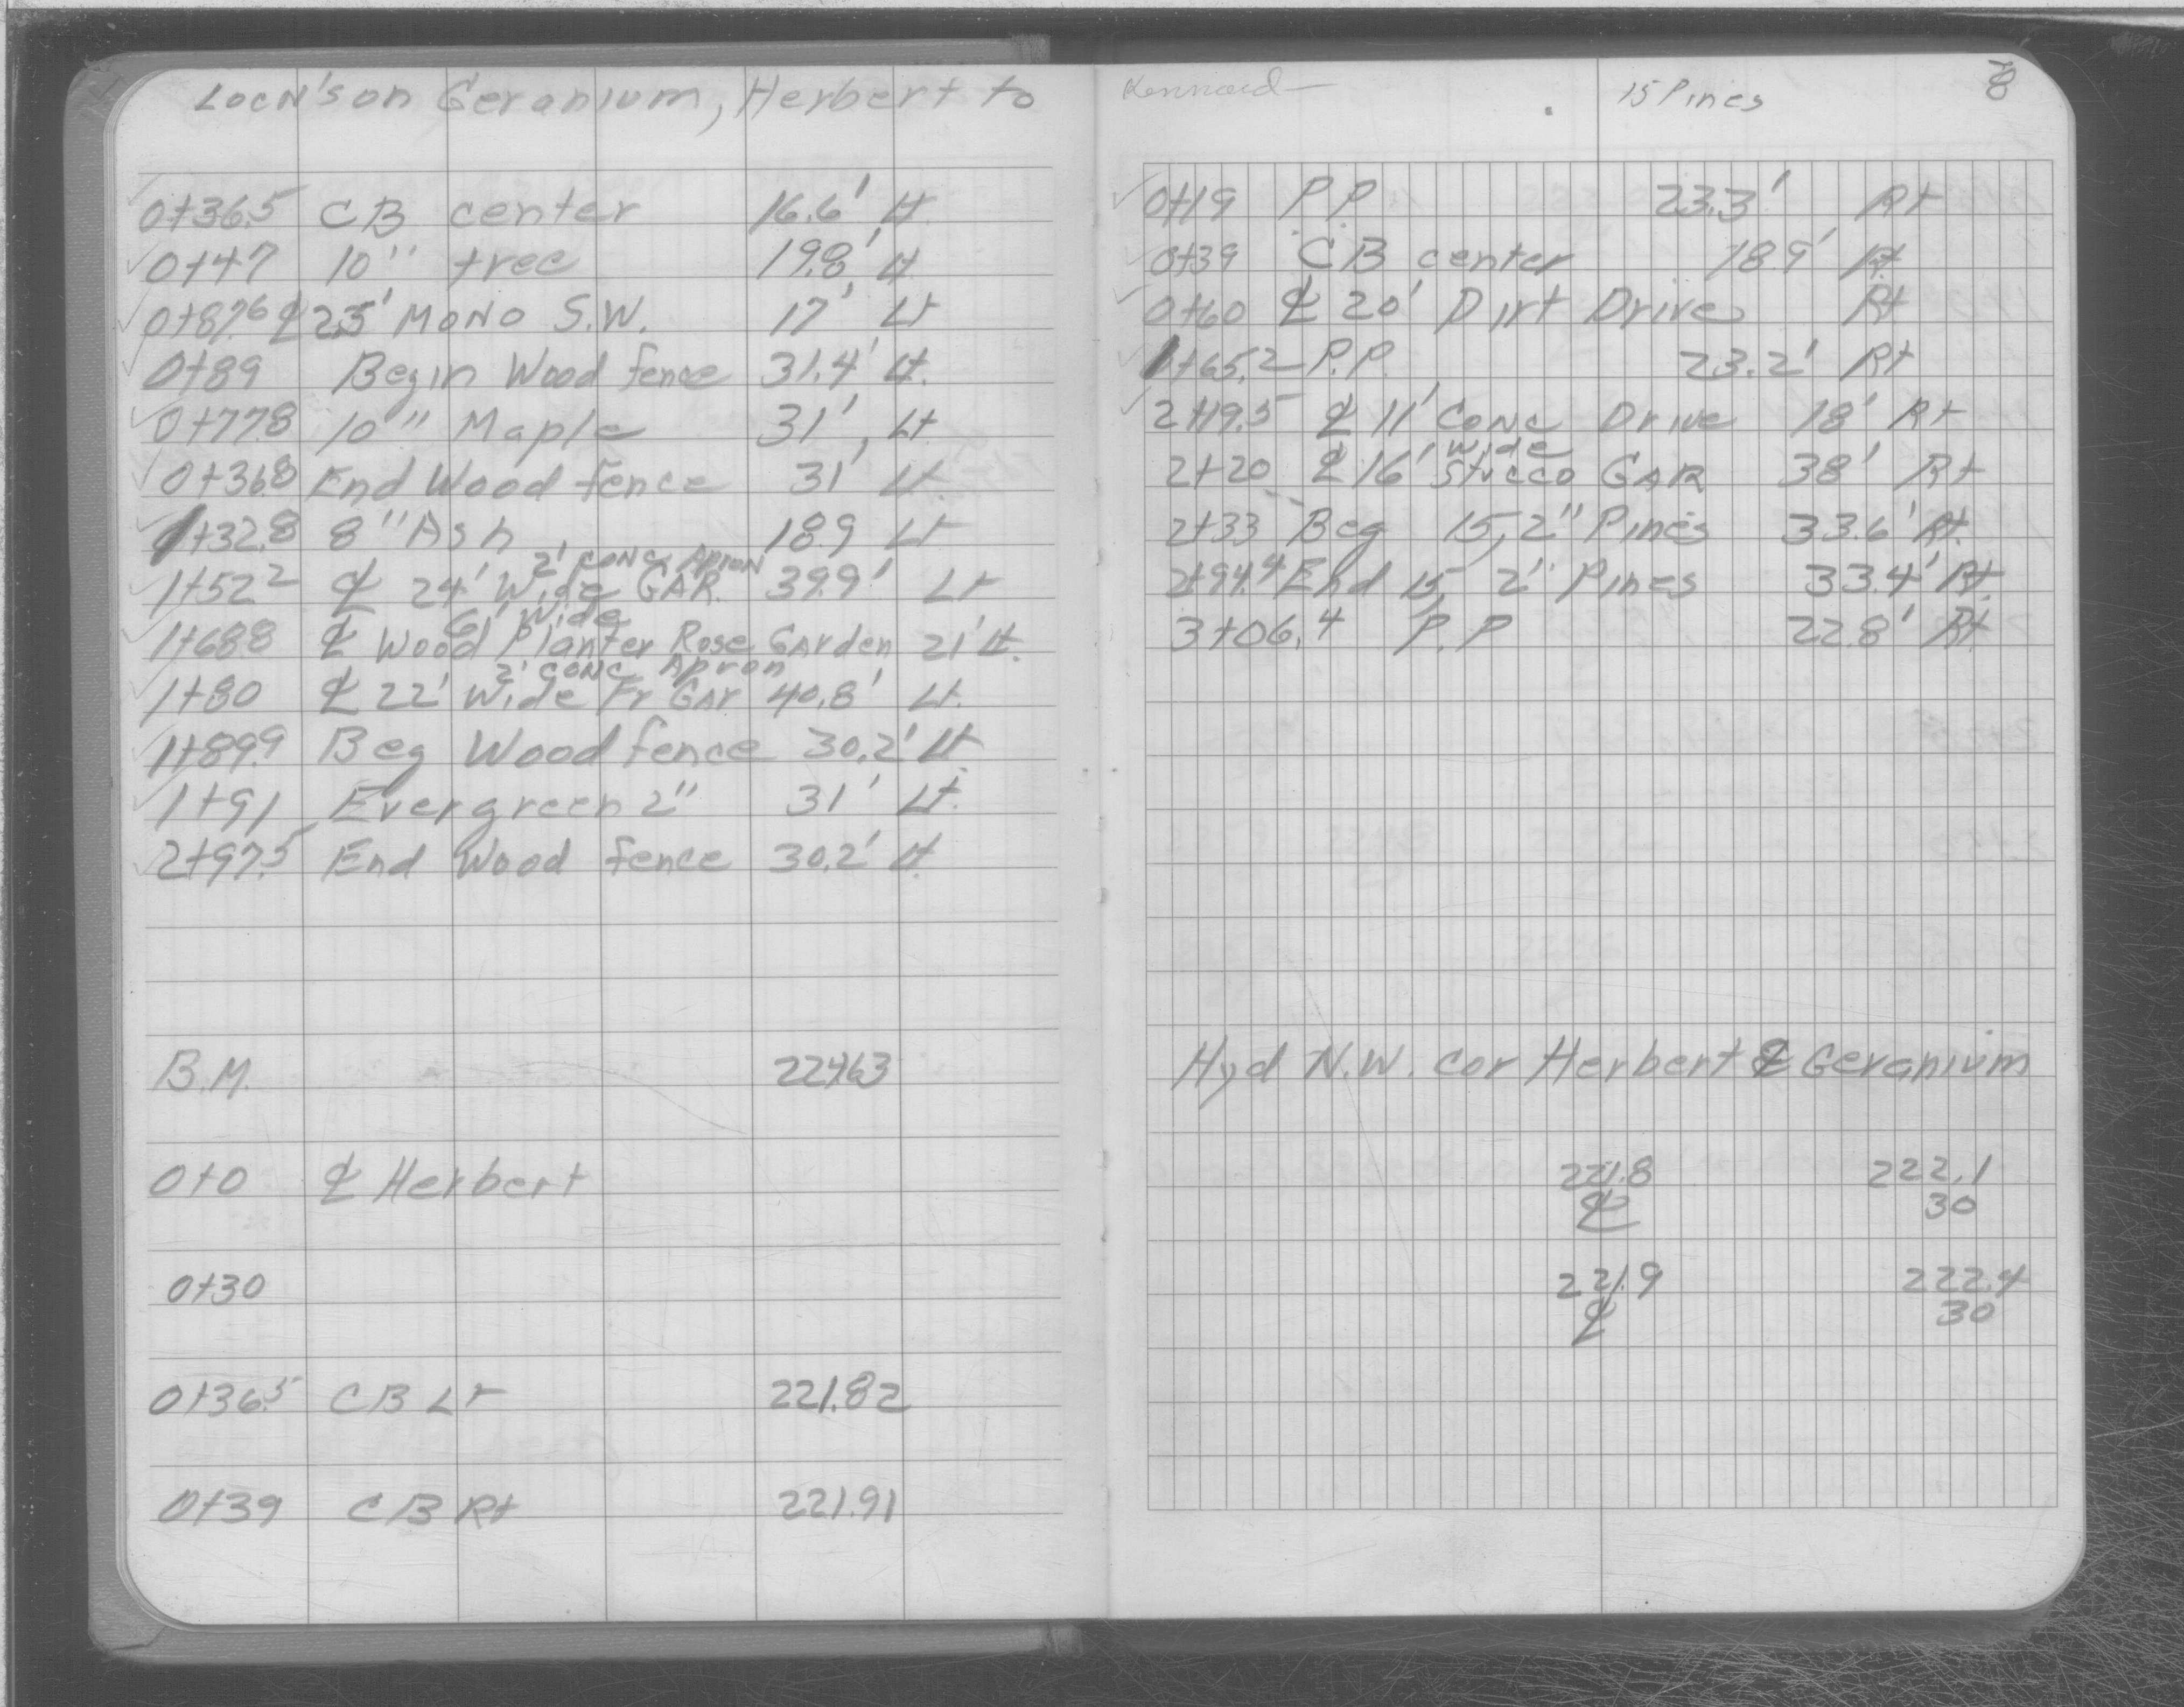 Locn's on Geranium, Herbert to
0+36.5 CB center 16.6' Lt.
0+47 10" tree 19.8' Lt
0+87.6 ℄ 2.5' MONO S.W. 17' Lt
0+89 Begin Wood fence 31.4' Lt.
0+77.8 10" Maple 31', Lt.
0+36.8 End Wood fence 31' Lt.
1+32.8 8" Ash 18.9 Lt
2' CONC Apron
1+52.2 ℄ 24' Wide GAR. 39.9' Lt
6' Wide
1+68.8 ℄ Wood Planter Rose Garden 21' Lt.
2' CONC Apron
1+80 ℄ 22' Wide Fr GAr 40.8' Lt.
1+89.9 Beg Wood fence 30.2' Lt.
1+91 Evergreen 2" 31' Lt.
2+97.5 End Wood fence 30.2' Lt.
B.M. 224.63
0+0 ℄ Herbert
0+30
0+36.5 CB Lt 221.82
0+39 CB Rt 221.91
Kennard 15 Pines 8
0+19 P.P. 23.3' Rt
0+39 CB center 18.9' Rt.
0+60 ℄ 20' Dirt Drive Rt
1+65.2 P.P. 23.2' Rt
2+19.5 ℄ 11' CONC Drive 18' Rt
wide
2+20 ℄ 16' Stucco GAR 38' Rt
2+33 Beg 15, 2" Pines 33.6' Rt.
2+94.4 End 15, 2" Pines 33.4' Rt.
3+06.4 P.P 22.8' Rt
Hyd N.W. cor Herbert & Geranium
221.8 222.1
℄ 30
221.9 222.4
℄ 30